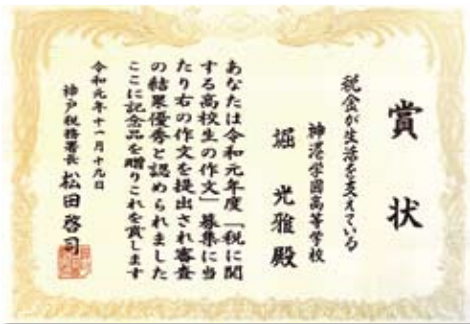 賞状
税金が生活を支えている
神港学園高等学校
堀光雅殿
あなたは令和元年度「税に関
する高校生の作文」募集に当
たり右の作文を提出され審査
の結果優秀と認められました
ここに記念品を贈りこれを賞します
令和元年十一月十九日
神戸税務署長 松田啓司